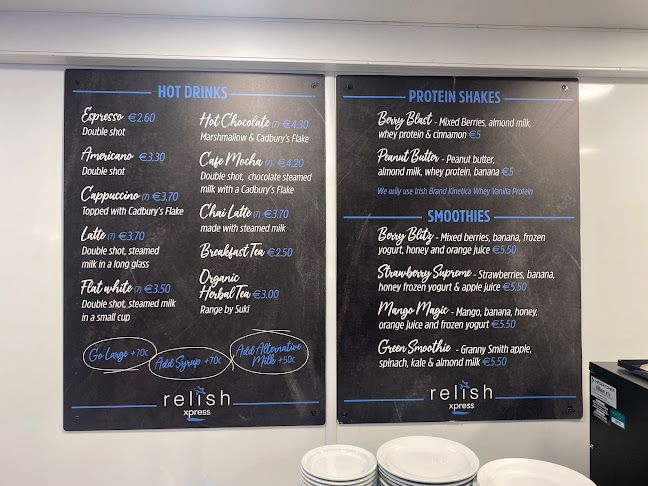 HOT DRINKS
Espresso €2.60
Double shot
Americano €3.30
Double shot
Cappuccino (7) €3.70
Topped with Cadbury's Flake
Latte (7) €3.70
Double shot, steamed
milk in a long glass
Flat white (7) €3.50
Double shot, steamed milk
in a small cup
Hot Chocolate (7) €4.30
Marshmallow & Cadbury's Flake
Cafe Mocha (7) €4.20
Double shot, chocolate steamed
milk with a Cadbury's Flake
Chai Latte (7) €3.70
made with steamed milk
Breakfast Tea €2.50
Organic
Herbal Tea €3.00
Range by Suki
Go Large +70c
Add Syrup +70c
Add Alternative
Milk +50c
relish
xpress
PROTEIN SHAKES
Berry Blast - Mixed Berries, almond milk,
whey protein & cinnamon €5
Peanut Butter - Peanut butter,
almond milk, whey protein, banana €5
We only use Irish Brand Kinetica Whey Vanilla Protein
SMOOTHIES
Berry Blitz - Mixed berries, banana, frozen
yogurt, honey and orange juice €5.50
Strawberry Supreme - Strawberries, banana,
honey frozen yogurt & apple juice €5.50
Mango Magic - Mango, banana, honey,
orange juice and frozen yogurt €5.50
Green Smoothie - Granny Smith apple,
spinach, kale & almond milk €5.50
relish
xpress